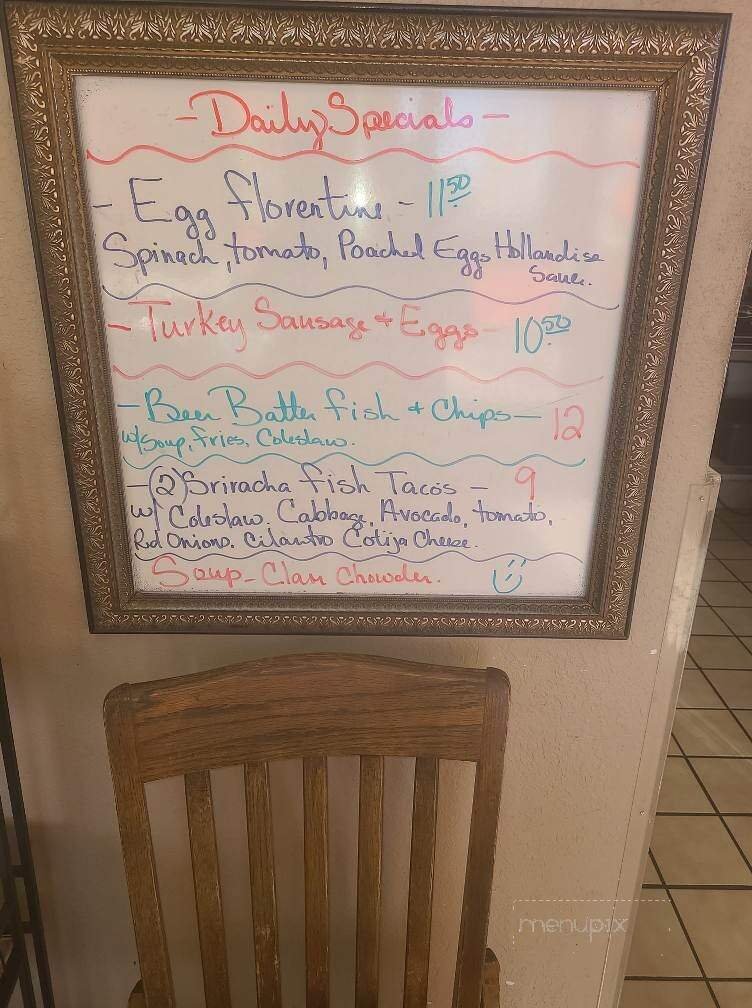 - Daily Specials -
- Egg florentine - 11.50
Spinach, tomato, Poached Eggs Hollandise
Sauce.
- Turkey Sausage + Eggs - 10.50
- Beer Batter fish + Chips - 12
w/ Soup, fries, Coleslaw.
- (2) Sriracha fish Tacos - 9
w/ Coleslaw. Cabbage, Avocado, tomato,
Red Onions. Cilantro Cotija Cheese.
Soup - Clam Chowder.
menupix